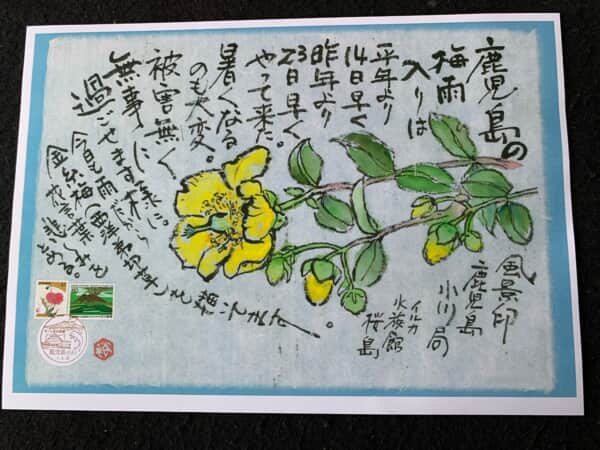 鹿児島の
梅雨
入りは
平年より
14日早く
昨年より
23日早く
やって来た。
暑くなる
のも大変。
被害無く
無事に
過ごせます様に。
今日も雨だから
金糸梅(西洋弟切草)も
花言葉 悲しみを
とめる。
風景印
鹿児島
小川局
イルカ
水族館
桜島